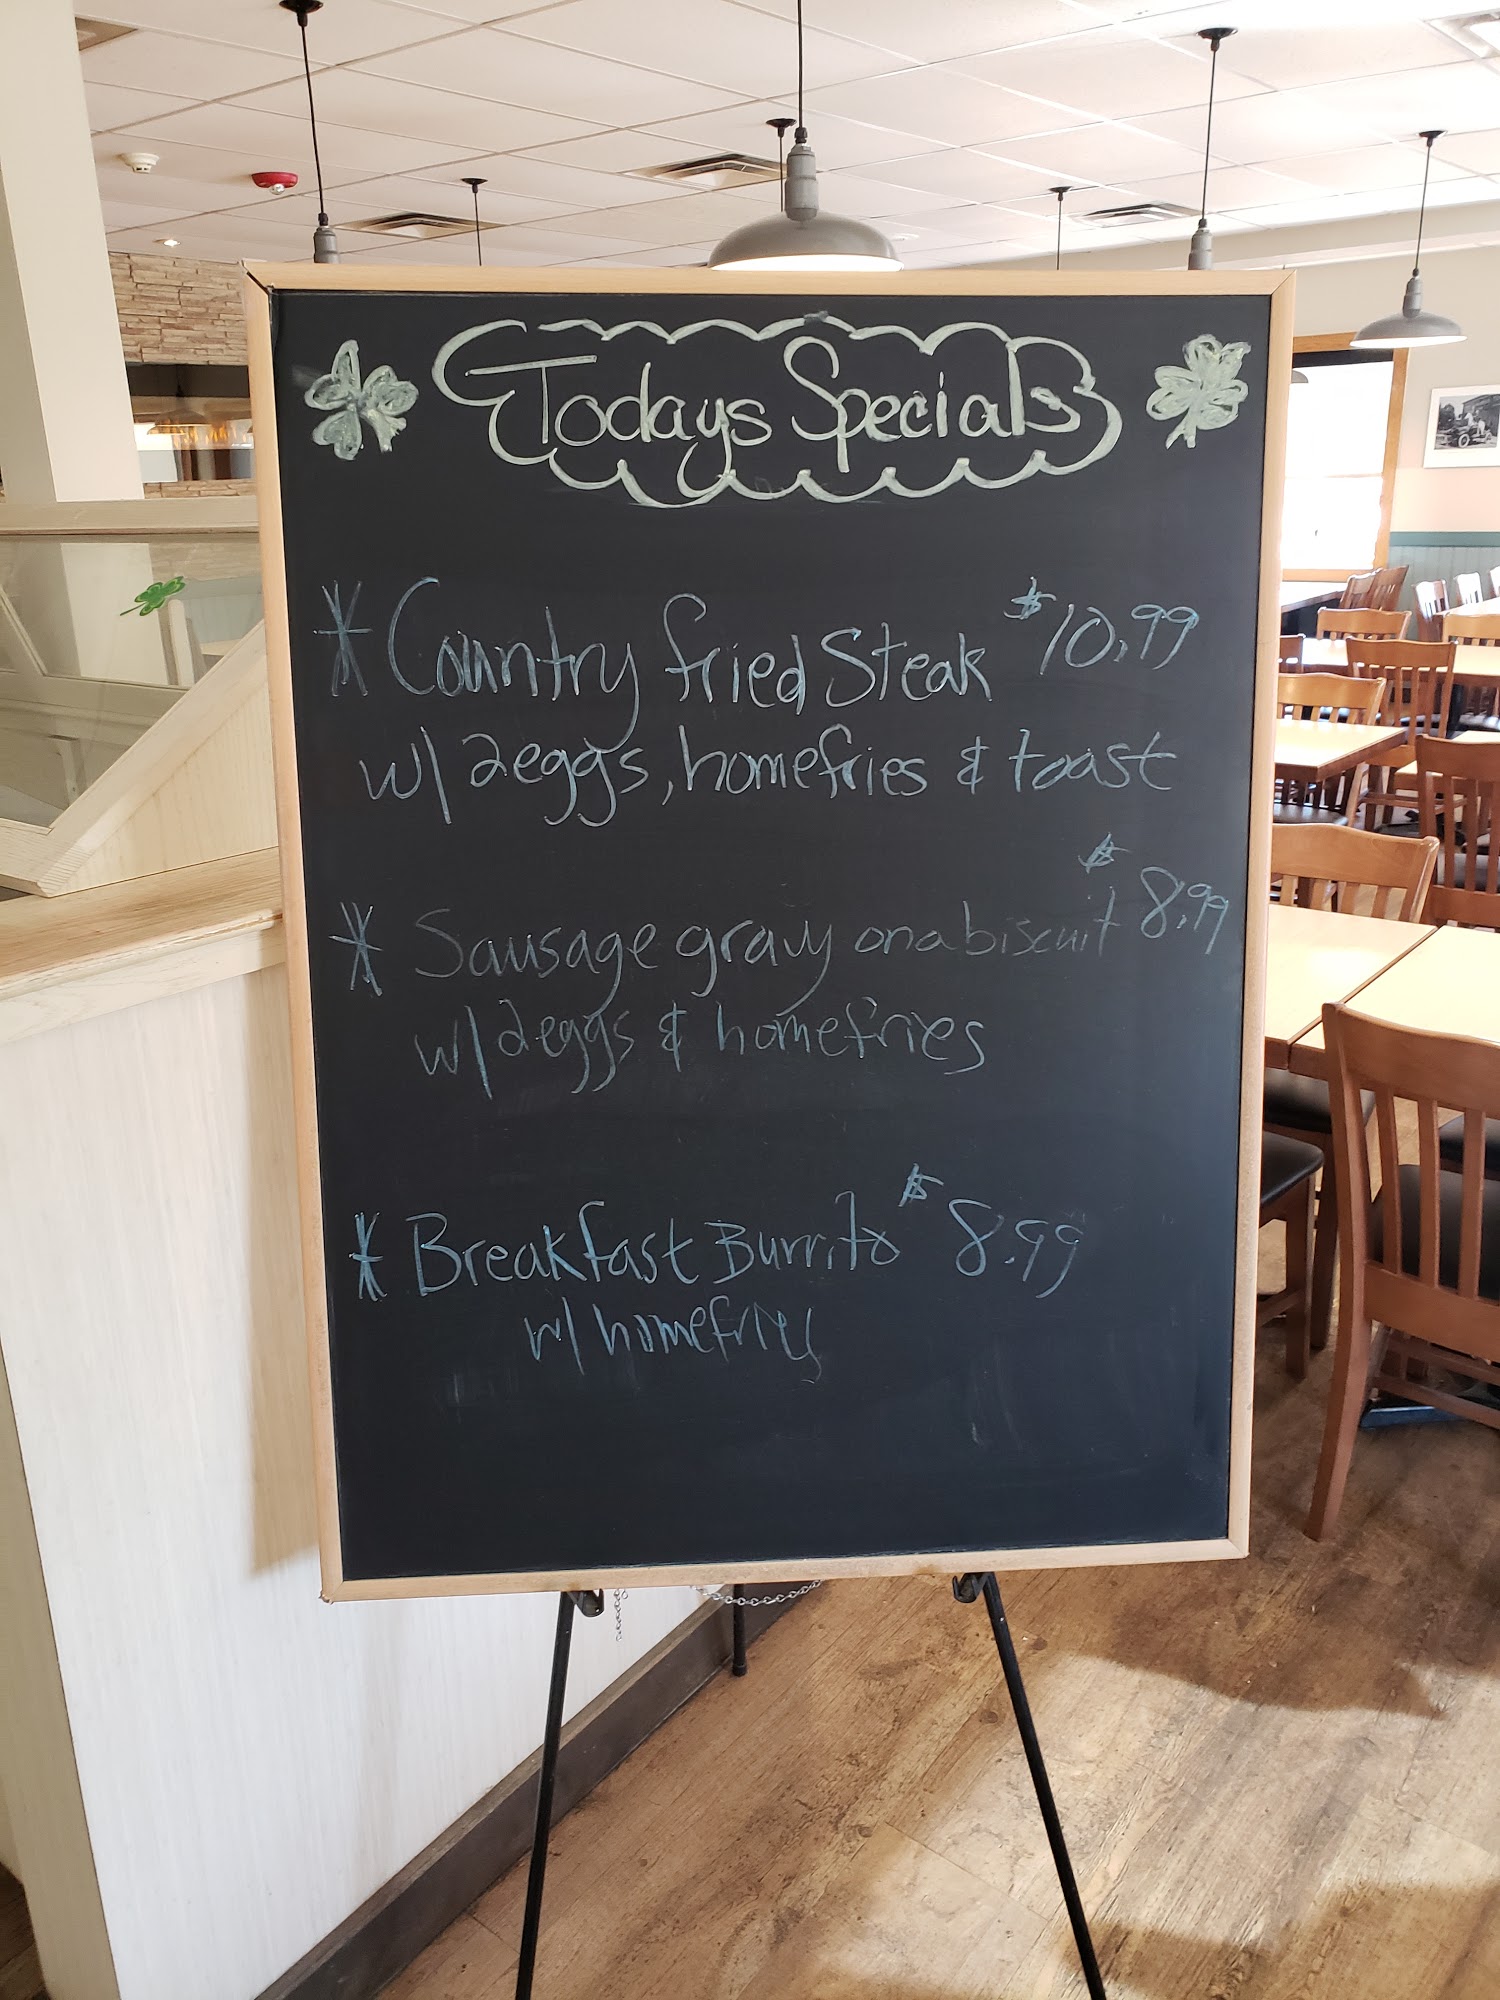 Todays Specials
* Country fried Steak $10.99
w/ 2eggs, homefries & toast
* Sausage gravy on a biscuit $8.99
w/ 2eggs & homefries
* Breakfast Burrito $8.99
w/ homefries